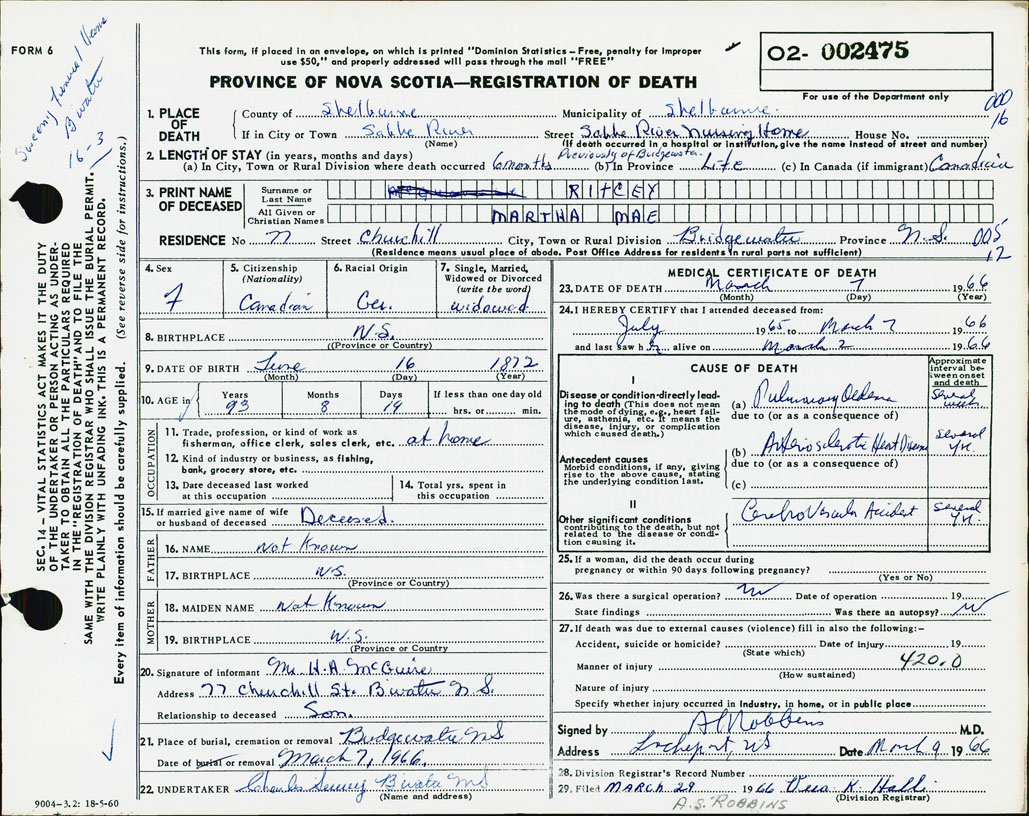 FORM 6
Sweeny Funeral Home
B'water
16-3
This form, if placed in an envelope, on which is printed "Dominion Statistics – Free, penalty for improper
use $50," and properly addressed will pass through the mail "FREE"
PROVINCE OF NOVA SCOTIA—REGISTRATION OF DEATH
02- 002475
For use of the Department only
000
16
1. PLACE OF DEATH
County of Shelburne Municipality of Shelburne.
If in City or Town Sable River Street Sable River Nursing Home House No.
(Name) (If death occurred in a hospital or institution, give the name instead of street and number)
2. LENGTH OF STAY (in years, months and days) Previously of Bridgewater
(a) In City, Town or Rural Division where death occurred 6 months (b) In Province Life (c) In Canada (if immigrant) Canadian
3. PRINT NAME OF DECEASED
Surname or Last Name RITCEY
All Given or Christian Names MARTHA MAE
RESIDENCE No 77 Street Churchill City, Town or Rural Division Bridgewater Province N.S. 005
12
(Residence means usual place of abode. Post Office Address for residents in rural parts not sufficient)
4. Sex F
5. Citizenship (Nationality) Canadian
6. Racial Origin Ger.
7. Single, Married, Widowed or Divorced (write the word) widowed
8. BIRTHPLACE N.S.
(Province or Country)
9. DATE OF BIRTH June 16 1872
(Month) (Day) (Year)
10. AGE in Years 93 Months 8 Days 19 If less than one day old hrs. or min.
OCCUPATION
11. Trade, profession, or kind of work as
fisherman, office clerk, sales clerk, etc. at home
12. Kind of industry or business, as fishing,
bank, grocery store, etc.
13. Date deceased last worked
at this occupation
14. Total yrs. spent in
this occupation
15. If married give name of wife
or husband of deceased Deceased.
FATHER
16. NAME Not Known
17. BIRTHPLACE N.S.
(Province or Country)
MOTHER
18. MAIDEN NAME Not Known
19. BIRTHPLACE N.S.
(Province or Country)
20. Signature of informant Mr. H.A. McGuire
Address 77 Churchill St. B'water N.S.
Relationship to deceased Son.
21. Place of burial, cremation or removal Bridgewater NS
Date of burial or removal March 7, 1966.
22. UNDERTAKER Charles Sweeny B'water NS
(Name and address)
MEDICAL CERTIFICATE OF DEATH
23. DATE OF DEATH March 7 1966
(Month) (Day) (Year)
24. I HEREBY CERTIFY that I attended deceased from:
July 1965 to March 7 1966
and last saw her alive on March 2 1966
CAUSE OF DEATH
Approximate interval between onset and death
I
Disease or condition directly leading to death (This does not mean
the mode of dying, e.g., heart failure, asthenia, etc. It means the
disease, injury, or complication
which caused death.)
(a) Pulmonary Oedema Several weeks
due to (or as a consequence of)
Antecedent causes
Morbid conditions, if any, giving
rise to the above cause, stating
the underlying condition last.
(b) Arteriosclerotic Heart Disease Several Yr.
due to (or as a consequence of)
(c)
II
Other significant conditions
contributing to the death, but not
related to the disease or condition causing it.
Cerebro Vascular Accident Several Yr.
25. If a woman, did the death occur during
pregnancy or within 90 days following pregnancy?
(Yes or No)
26. Was there a surgical operation? No Date of operation 19
State findings Was there an autopsy? No
27. If death was due to external causes (violence) fill in also the following:–
Accident, suicide or homicide? Date of injury 19
(State which)
Manner of injury 420.0
(How sustained)
Nature of injury
Specify whether injury occurred in industry, in home, or in public place
Signed by A S Robbins M.D.
Address Lockeport, NS Date March 9 1966
28. Division Registrar's Record Number
29. Filed MARCH 29 1966 K.
(Division Registrar)
A.S. ROBBINS
SEC. 14 – VITAL STATISTICS ACT MAKES IT THE DUTY
OF THE UNDERTAKER OR PERSON ACTING AS UNDERTAKER TO OBTAIN ALL THE PARTICULARS REQUIRED
IN THE "REGISTRATION OF DEATH" AND TO FILE THE
SAME WITH THE DIVISION REGISTRAR WHO SHALL ISSUE THE BURIAL PERMIT.
WRITE PLAINLY WITH UNFADING INK. THIS IS A PERMANENT RECORD.
Every item of information should be carefully supplied. (See reverse side for instructions.)
9004-3.2: 18-5-60